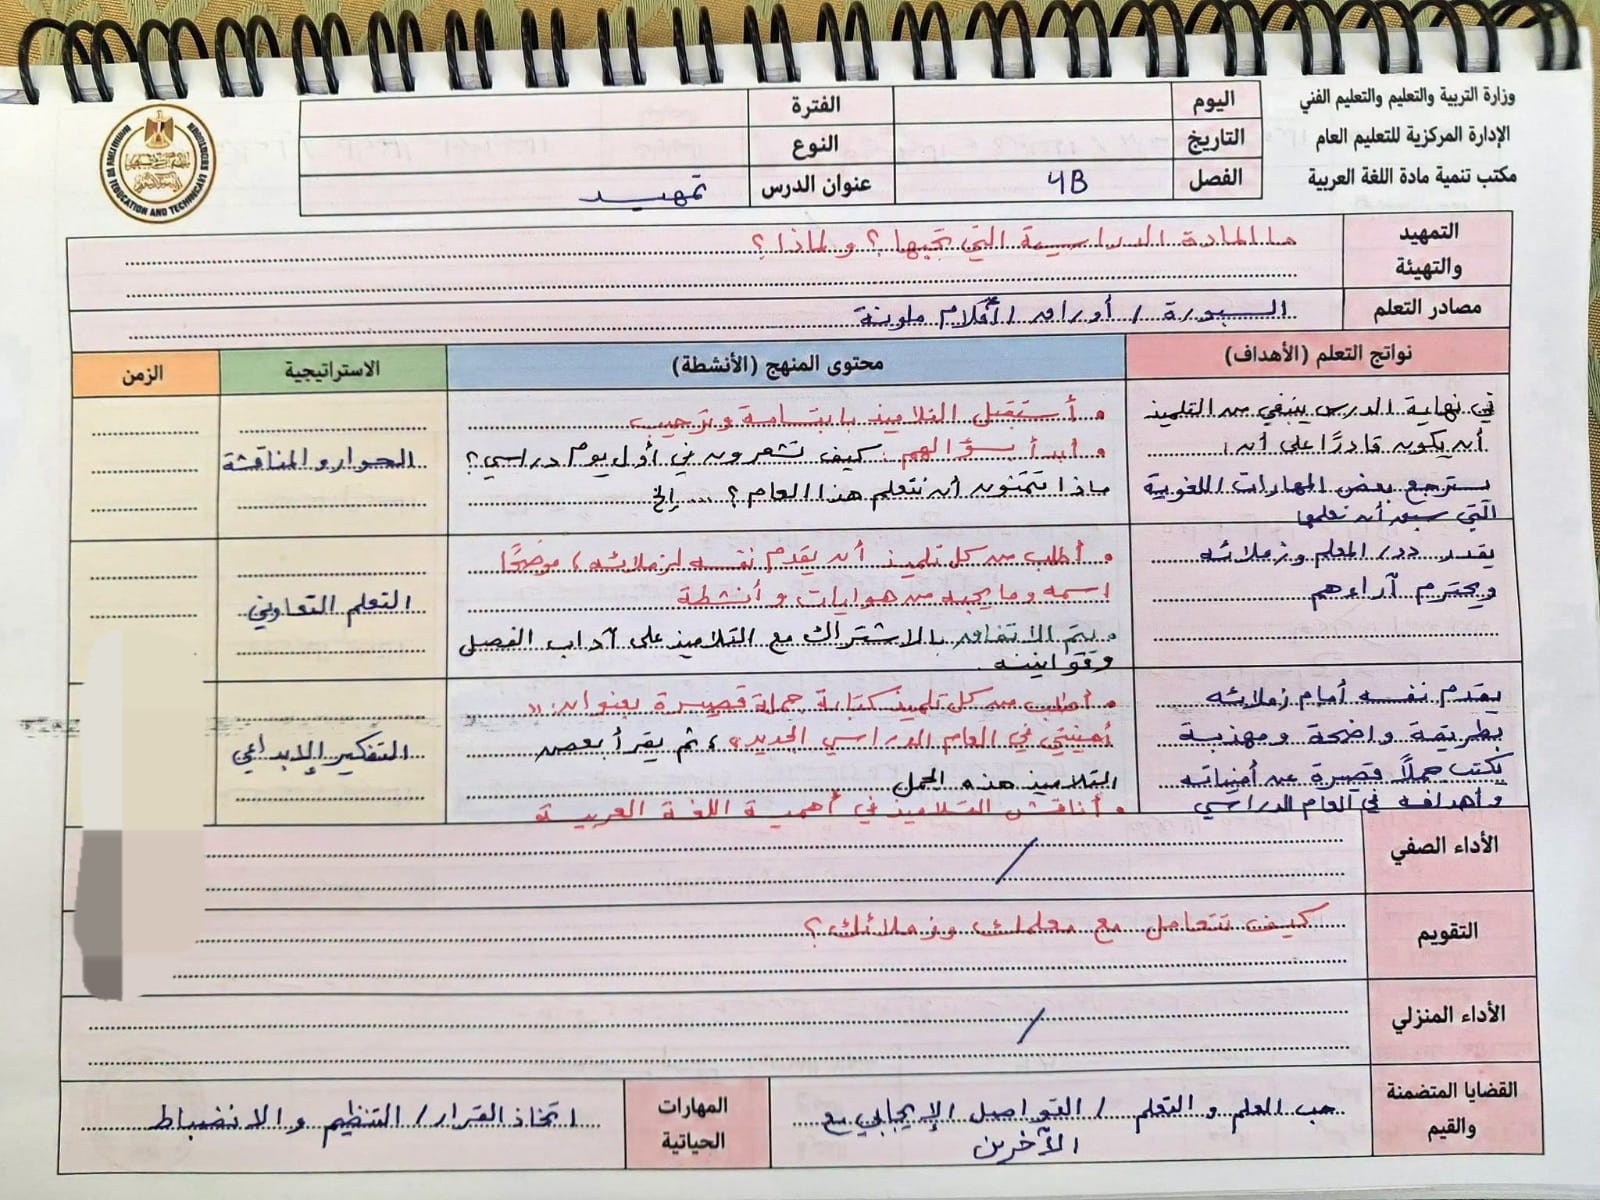 وزارة التربية والتعليم والتعليم الفني
الإدارة المركزية للتعليم العام
مكتب تنمية مادة اللغة العربية
اليوم
الفترة
التاريخ
النوع
الفصل 4B
عنوان الدرس تمهيد
MINISTRY OF EDUCATION AND TECHNICAL EDUCATION
التمهيد والتهيئة
ما المادة الدراسية التي تحبها؟ ولماذا؟
مصادر التعلم
السبورة / أوراق / أقلام ملونة
نواتج التعلم (الأهداف)
محتوى المنهج (الأنشطة)
الاستراتيجية
الزمن
في نهاية الدرس ينبغي من التلميذ
أن يكون قادرًا على أن:
يسترجع بعض المهارات اللغوية
التي سبق أن تعلمها
• أستقبل التلاميذ بابتسامة وترحيب
• أبدأ بسؤالهم: كيف تشعرون في أول يوم دراسي؟
ماذا تتمنون أن نتعلم هذا العام؟ .... إلخ
الحوار والمناقشة
يقدر دور المعلم وزملائه
ويحترم آراءهم
• أطلب من كل تلميذ أن يقدم نفسه لزملائه، موضحًا
اسمه وما يحبه من هوايات وأنشطة
• يتم الاتفاق بالاشتراك مع التلاميذ على آداب الفصل
وقوانينه.
التعلم التعاوني
يقدم نفسه أمام زملائه
بطريقة واضحة ومهذبة
يكتب جملاً قصيرة عن أمنياته
وأهدافه في العام الدراسي
• أطلب من كل تلميذ كتابة جملة قصيرة بعنوان: «
أمنيتي في العام الدراسي الجديد»، ثم يقرأ بعض
التلاميذ هذه الجمل
• أناقش التلاميذ في أهمية اللغة العربية
التفكير الإبداعي
الأداء الصفي
/
التقويم
كيف تتعامل مع معلمك وزملائك؟
الأداء المنزلي
/
القضايا المتضمنة والقيم
حب العلم والتعلم / التواصل الإيجابي مع
الآخرين
المهارات الحياتية
اتخاذ القرار / التنظيم والانضباط